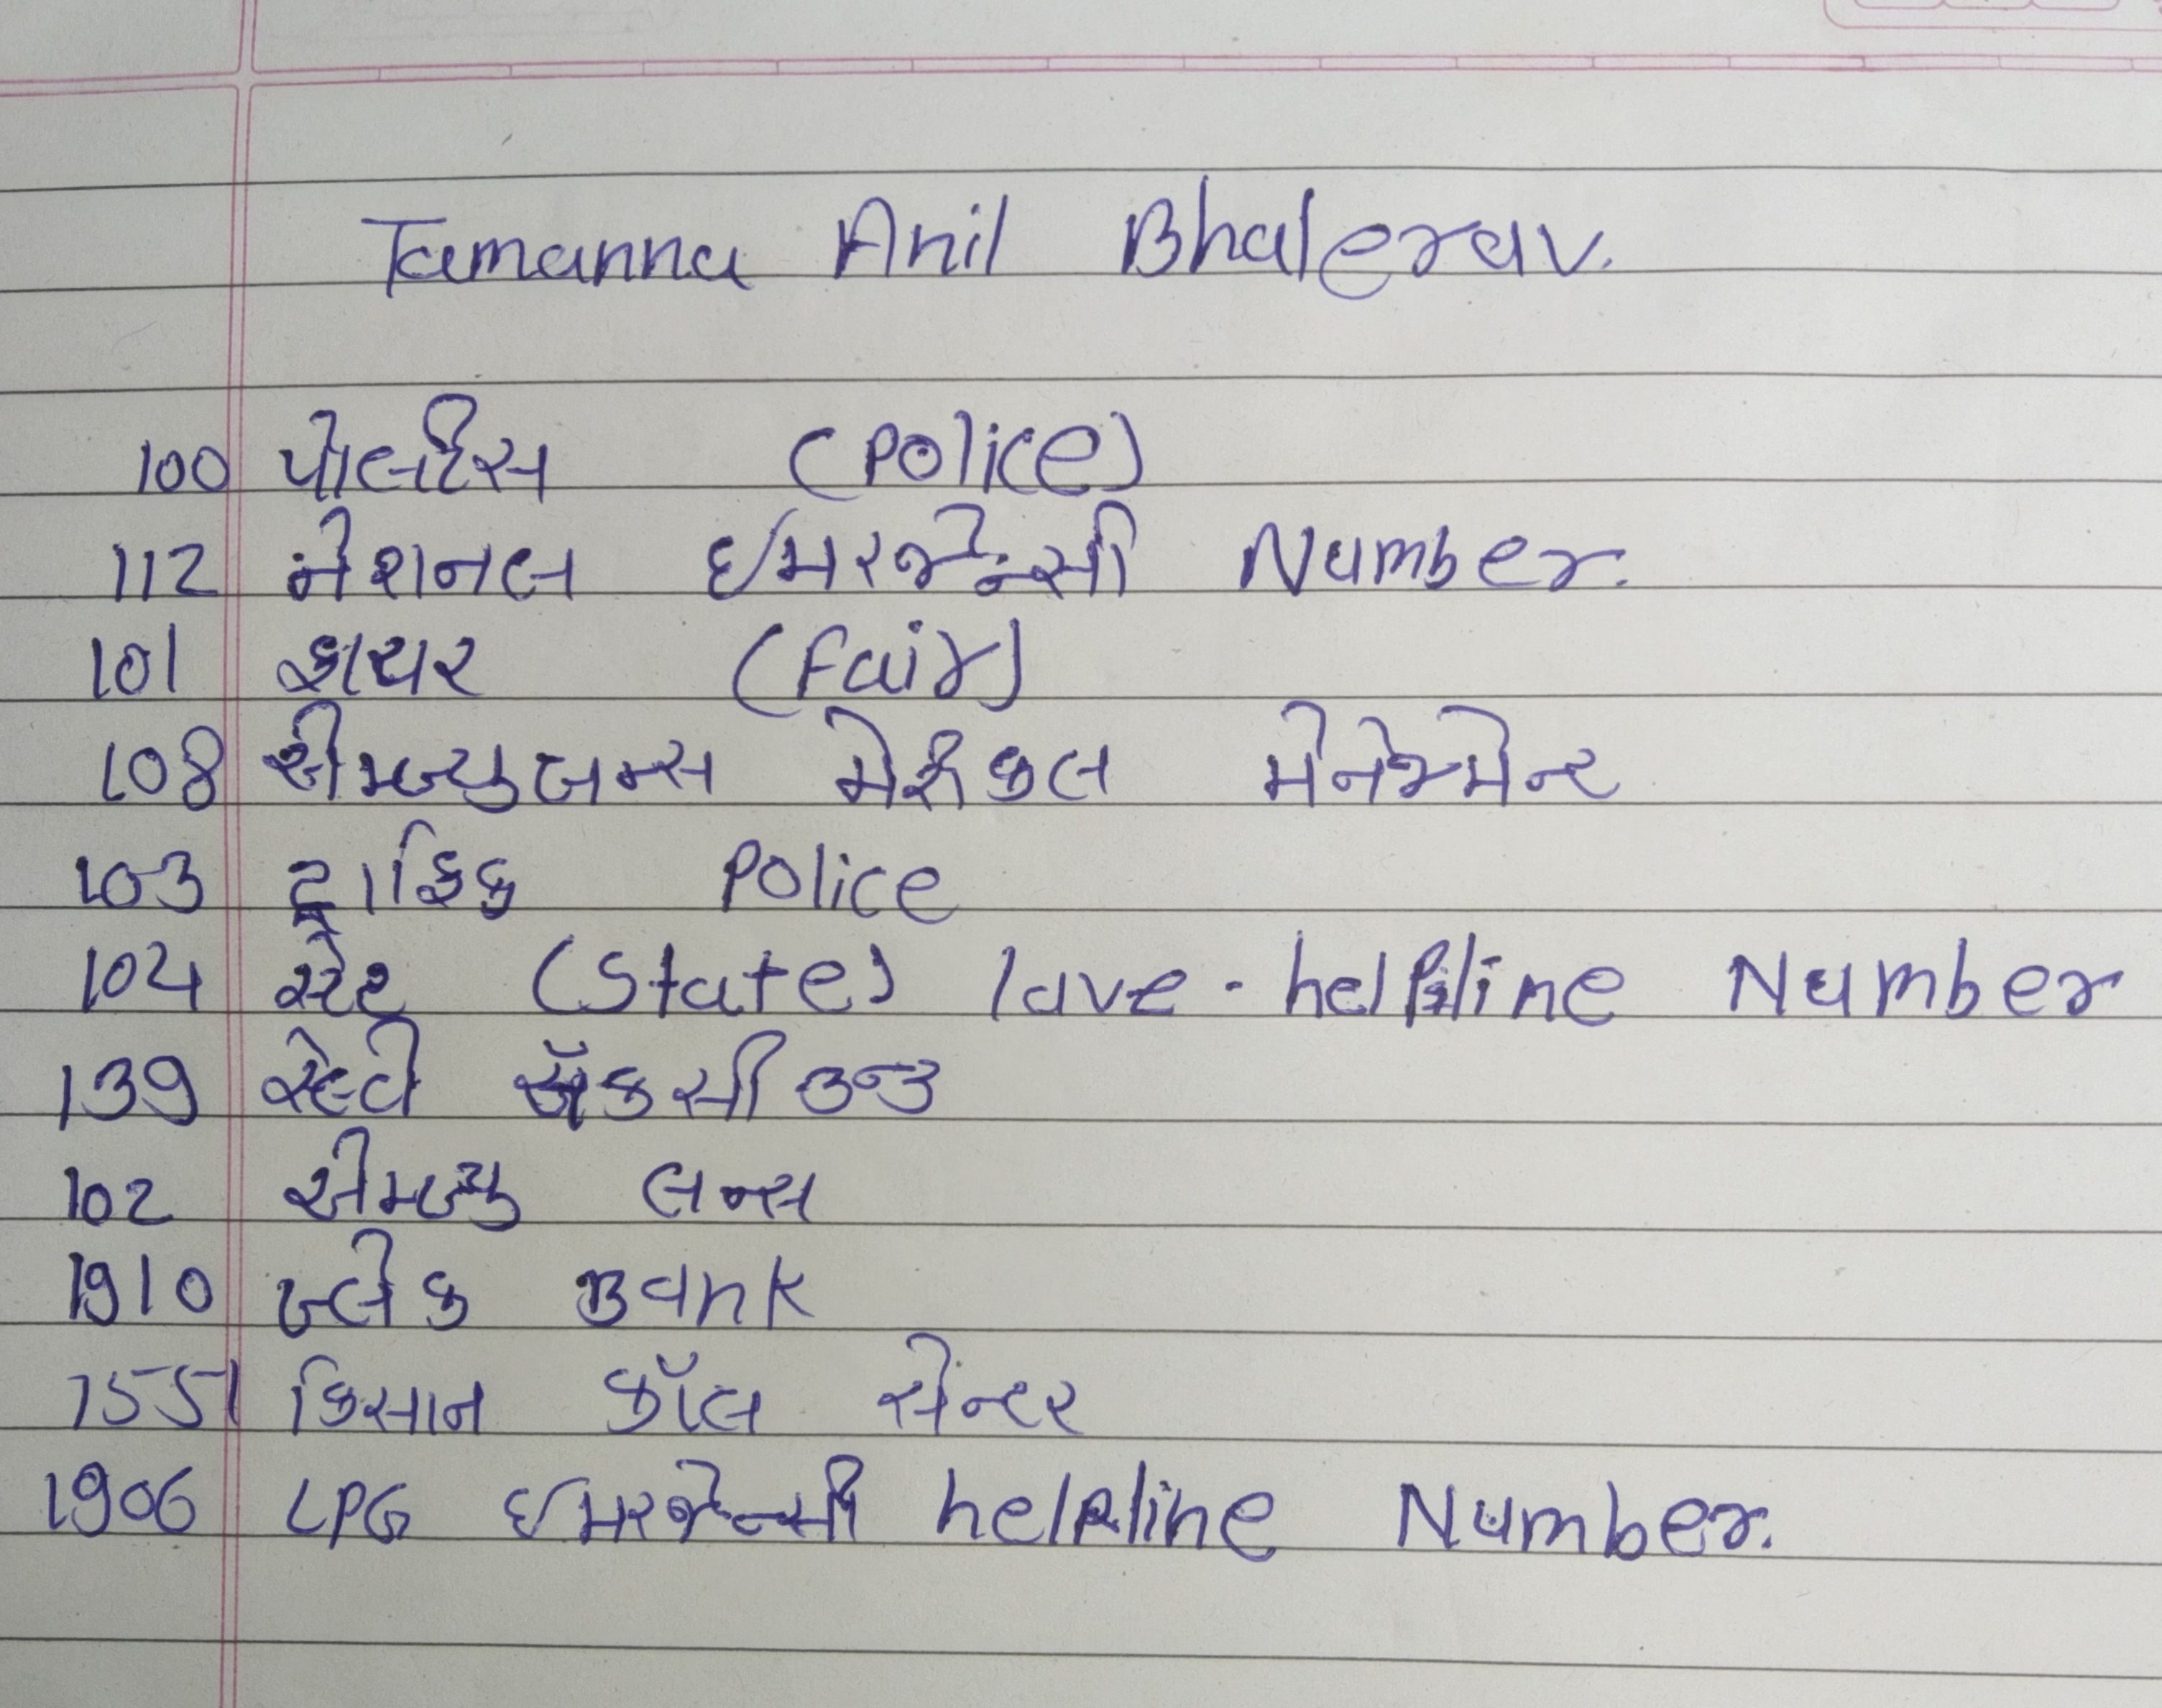 Tamanna Anil Bhalerav.
100 પોલીસ (Police)
112 નેશનલ ઈમરજેન્સી Number.
101 ફાયર (Fair)
108 એમ્બ્યુલન્સ મેડીકલ મેનેજમેન્ટ
103 ટ્રાફિક Police
104 સ્ટેટ (State) lave - helpline Number
139 રેલ્વે ઍકસીડન્ડ
102 એમ્બ્યુ લન્સ
1910 બ્લેક Bank
1551 કિસાન કૉલ સેન્ટર
1906 LPG ઈમરજેન્સી helpline Number.